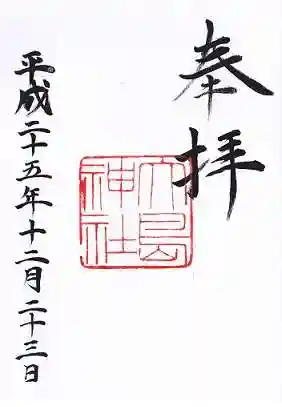 奉拝
大島神社
平成二十五年十二月二十三日